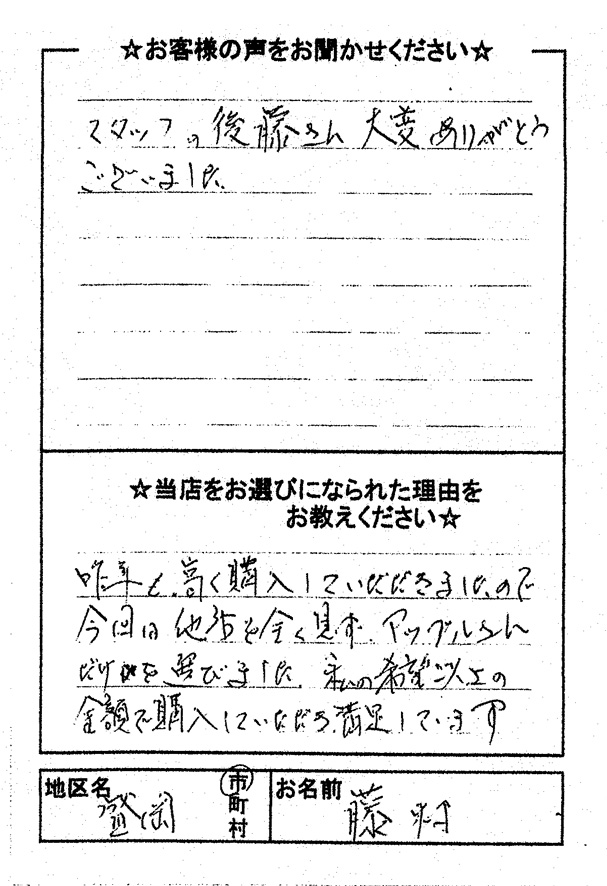 ☆お客様の声をお聞かせください☆
スタッフの後藤さん 大変ありがとう
ございました。
☆当店をお選びになられた理由を
お教えください☆
昨年も高く購入していただきましたので
今回は他店を全く見ず、アップルさん
だけを選びました。私の希望以上の
金額で購入していただき満足しています
地区名 盛岡 市町村 お名前 藤村